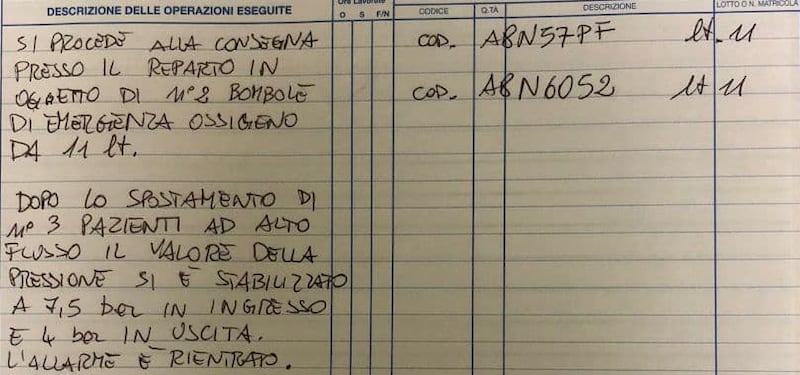 DESCRIZIONE DELLE OPERAZIONI ESEGUITE
Ore Lavorate
O S F/N
CODICE
Q.TA
DESCRIZIONE
LOTTO O N. MATRICOLA
SI PROCEDE ALLA CONSEGNA
PRESSO IL REPARTO IN
OGGETTO DI N°2 BOMBOLE
DI EMERGIENZA OSSIGENO
DA 11 lt.
DOPO LO SPOSTAMENTO DI
N° 3 PAZIENTI AD ALTO
FLUSSO IL VALORE DELLA
PRESSIONE SI È STABILIZZATO
A 7,5 bar IN INGRESSO
E 4 bar IN USCITA.
L'ALLARME È RIENTRATO.
COD. A8N57PF lt. 11
COD. A8N6052 lt 11